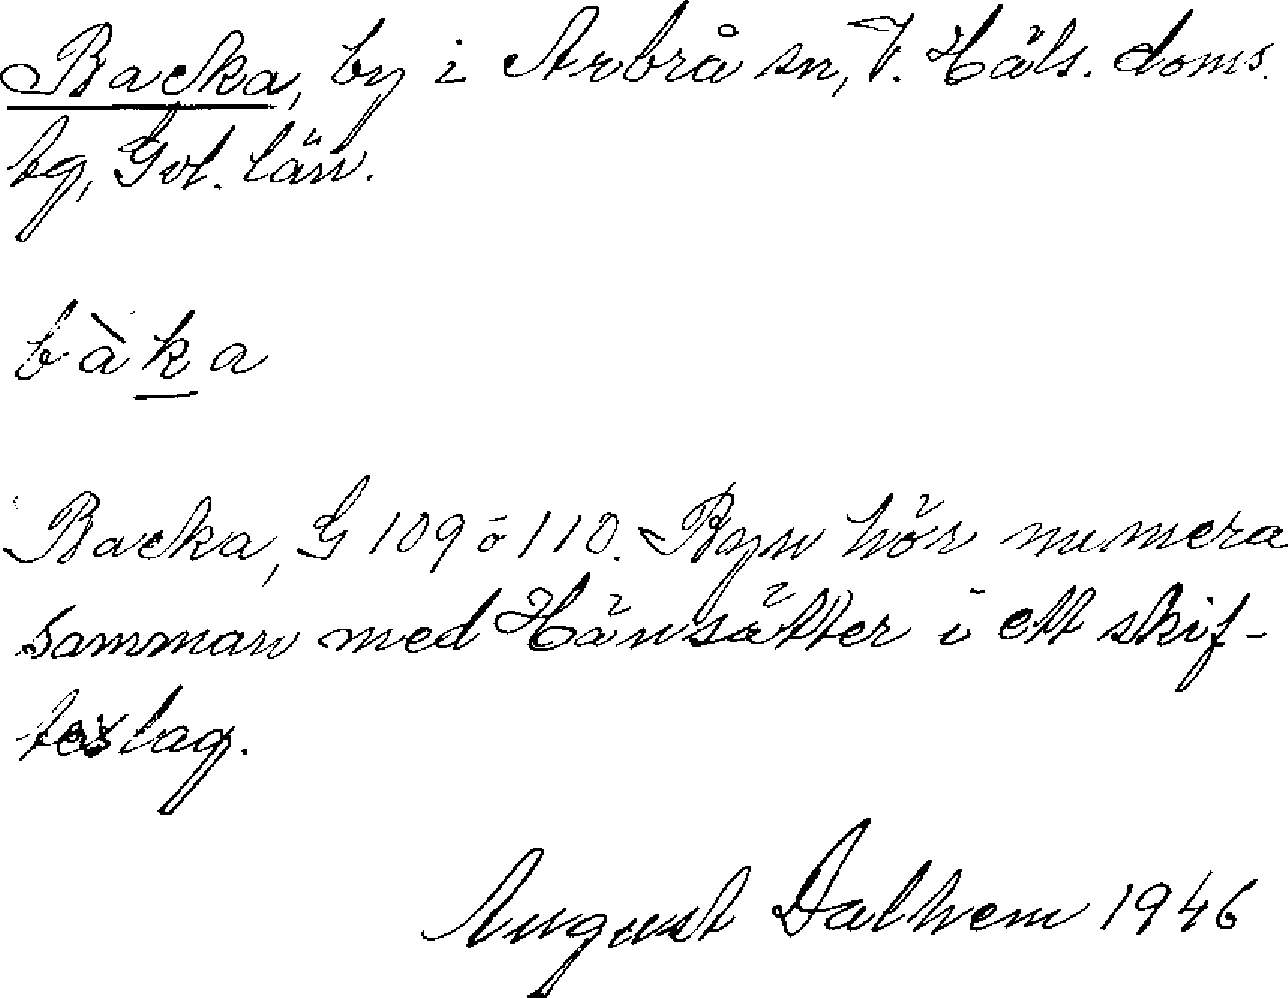 Backa, by i Arbrå sn, V. Häls. doms.
tg, Gvl. län.
bàka
Backa, G 109 o 110. Byn hör numera
samman med Hänsätter i ett skif-
teslag.
August Dalhem 1946